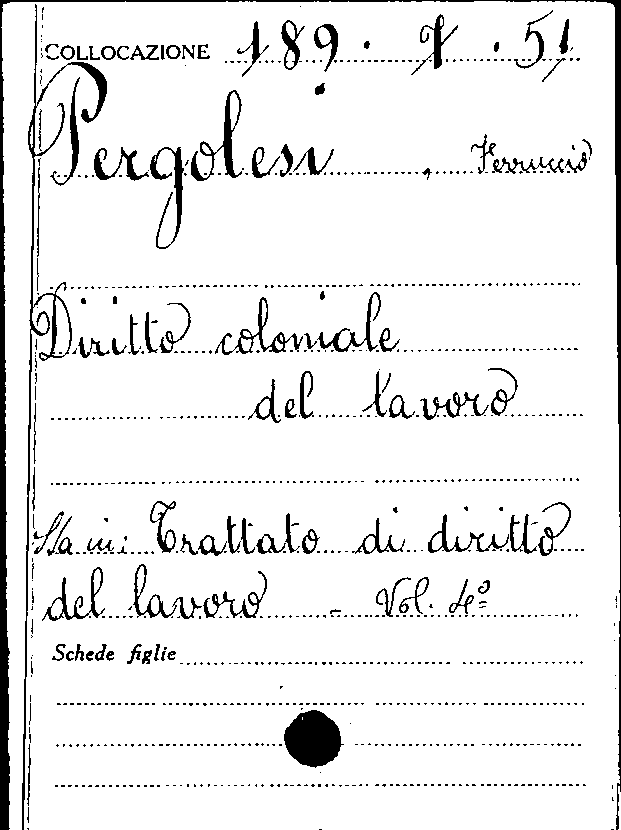 COLLOCAZIONE 189. 7. 51
Pergolesi, Ferruccio
Diritto coloniale
del lavoro
Sta in: Trattato di diritto
del lavoro - Vol. 4º
Schede figlie